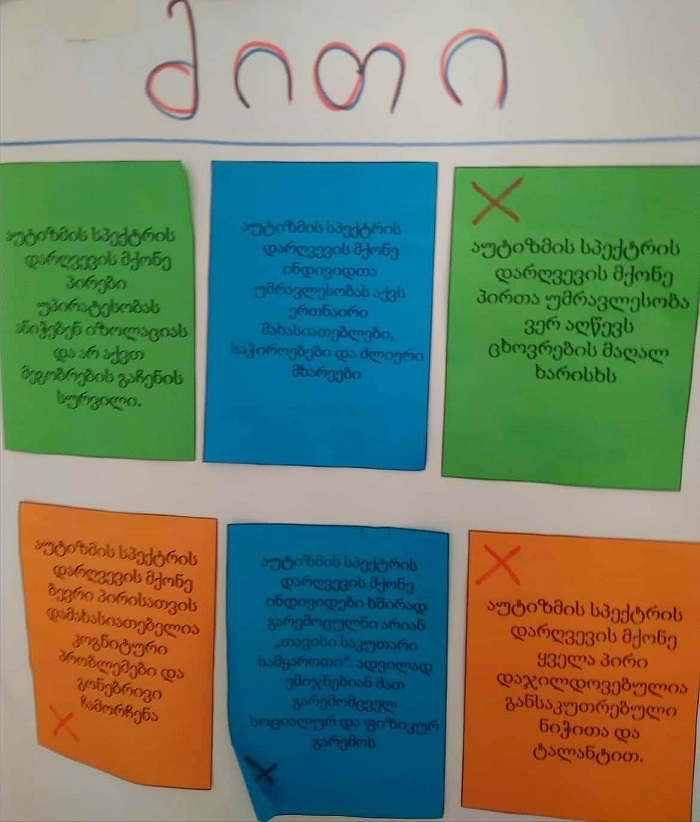 მითი
აუტიზმის სპექტრის
დარღვევის მქონე
პირები
უპირატესობას
ანიჭებენ იზოლაციას
და არ აქვთ
მეგობრების გაჩენის
სურვილი.
აუტიზმის სპექტრის
დარღვევის მქონე
ინდივიდთა
უმრავლესობას აქვს
ერთნაირი
მახასიათებლები,
საჭიროებები და ძლიერი
მხარეები
აუტიზმის სპექტრის
დარღვევის მქონე
პირთა უმრავლესობა
ვერ აღწევს
ცხოვრების მაღალ
ხარისხს
აუტიზმის სპექტრის
დარღვევის მქონე
ბევრი პირისათვის
დამახასიათებელია
კოგნიტური
პრობლემები და
გონებრივი
ჩამორჩენა
აუტიზმის სპექტრის
დარღვევის მქონე
ინდივიდები ხშირად
გარემოცულნი არიან
„თავისი საკუთარი
სამყაროთი“. ადვილად
ემიჯნებიან მათ
გარემომცველ
სოციალურ და ფიზიკურ
გარემოს
აუტიზმის სპექტრის
დარღვევის მქონე
ყველა პირი
დაჯილდოვებულია
განსაკუთრებული
ნიჭითა და
ტალანტით.